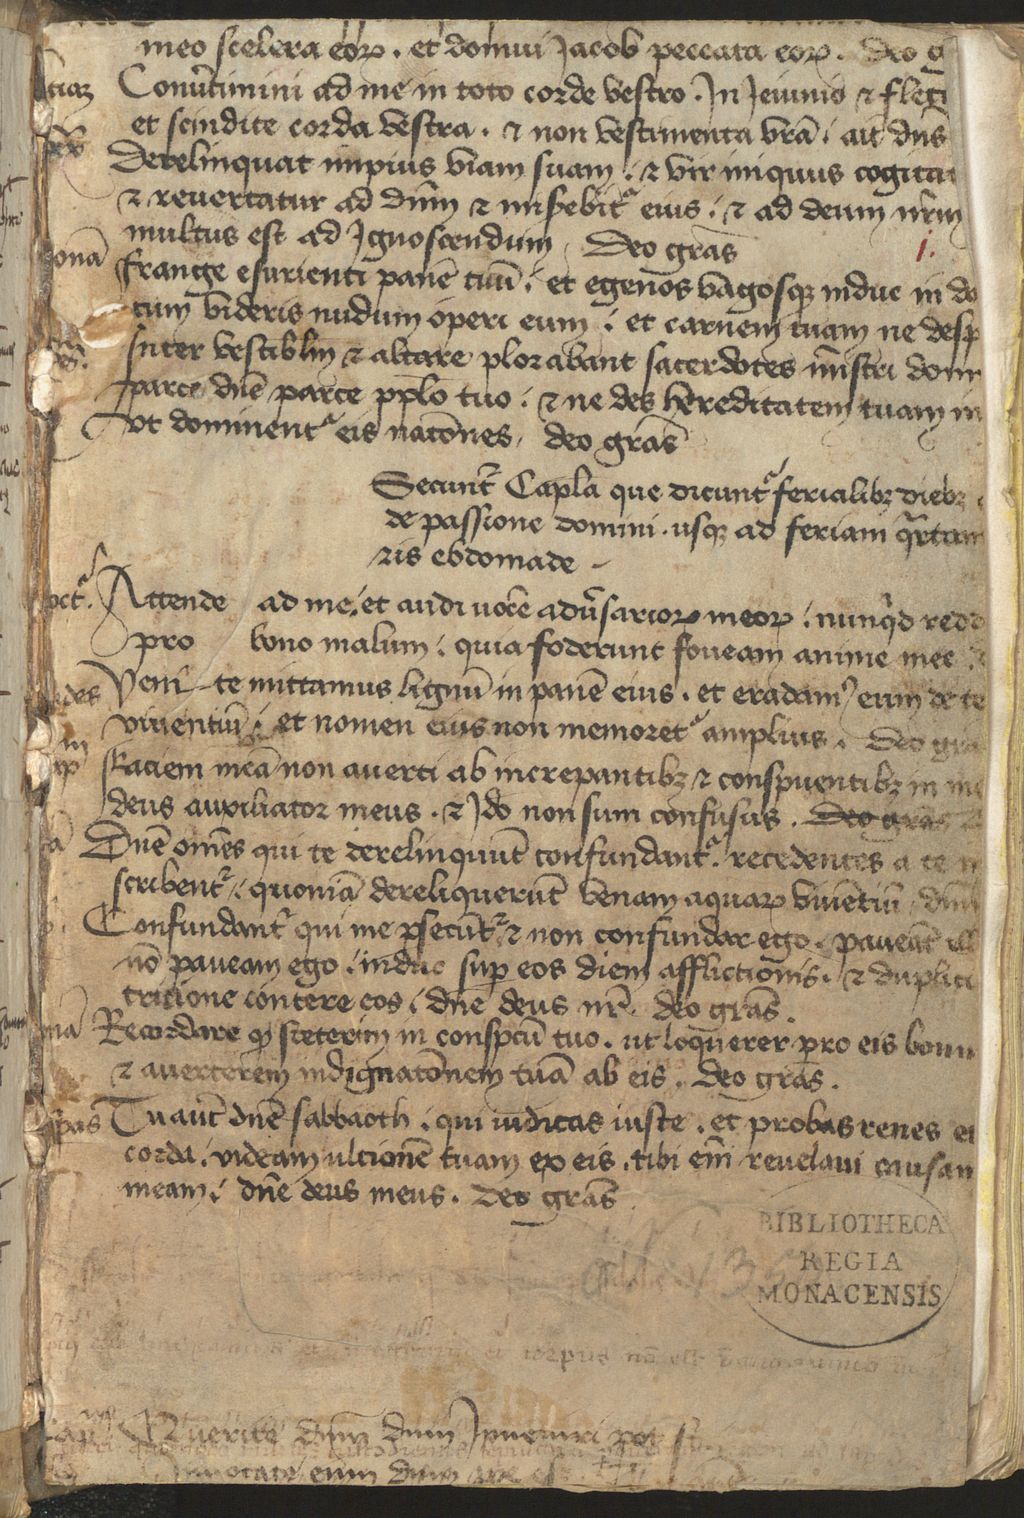 meo scelera eoꝝ . et domui Jacob peccata eoꝝ . Deo g
Conv̄timini ad me in toto corde vestro . In Jeiunio ⁊ fletu
et scindite corda vestra . ⁊ non vestimenta vrā . ait dn̄s
Derelinquat impius viam suam . ⁊ vir iniquus cogitat
⁊ revertatur ad dn̄m ⁊ mis̄ebit̉ eius . ⁊ ad deum nr̄m
multus est ad Ignoscendum , Deo gr̄as
i.
Frange esurienti panē tuū . et egenos vagosqꝫ induc in do
cum videris nudum operi eum . et carnem tuam ne desp
Inter vestiblm̄ ⁊ altare plorabant sacerdotes mi̅stri dom
parce dn̄e parce pplo̅ tuo . ⁊ ne des hereditatem tuam in
ut dominent̉ eis nac̄ones , deo gr̄as
Secunt̉ Capl̅a que dicunt̉ ferialibꝫ diebꝫ
de passione domini . usqꝫ ad feriam q̄rtam
ris ebdomade
Attende ad me, et audi uocē adv̄sarioꝝ meoꝝ . nunq̇d redd
pro bono malum . quia foderunt foueam anime mee
Venite mittamus lignū in panē eius . et eradamꝰ eum de te
viuentiū . et nomen eius non memoret̉ amplius . Deo gra
Faciem meā non averti ab increpantibꝫ ⁊ conspuentibꝫ in me
deus auxiliator meus . ⁊ Jdo non sum confusus . Deo gras
Dn̄e om̄es qui te derelinquūt confundant̉ . recedentes a te
scribent̉ . quoniā dereliquerūt venam aquaꝝ viuētiū dn̄m
Confundant̉ qui me ꝑsecūt̉ ⁊ non confundar ego . paveāt ill
nō paveam ego . induc suꝑ eos diem afflictionis . ⁊ duplici
tritione contere eos . dn̄e deus nr̄ . deo gr̄as .
nā Recordare ꝙ steterim in conspc̄tu tuo . ut loquerer pro eis bonu
⁊ averterem indignac̄onem tuā ab eis . Deo gras .
Tu aut̄ dn̄e sabbaoth . qui iudicas iuste . et probas renes et
corda . videam ulcionē tuam ex eis . tibi em̄ revelavi causam
meam . dn̄e deus meus . Deo gr̄as
BIBLIOTHECA
REGIA
MONACENSIS
corpus
Querite dn̄m dum Inveniri pot
Invocate eum dum